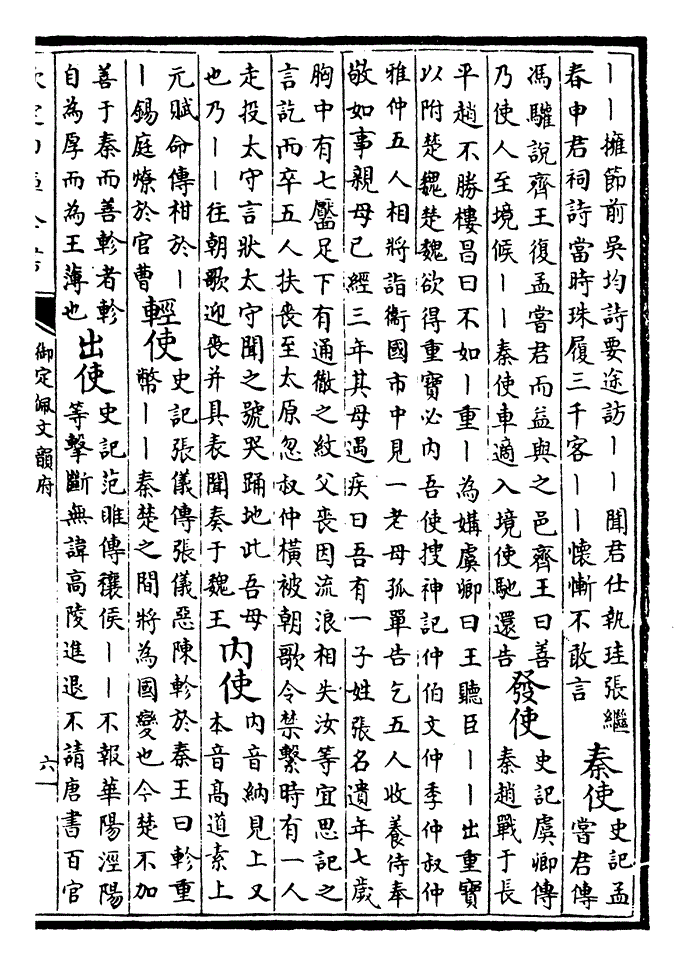 ——擁節前吳均詩要途訪——聞君仕執珪張繼
春申君祠詩當時珠履三千客——懷慚不敢言
秦使
史記孟
嘗君傳
馮驩說齊王復孟嘗君而益與之邑齊王曰善
乃使人至境候——秦使車適入境使馳還告
發使
史記虞卿傳
秦趙戰于長
平趙不勝樓昌曰不如—重—為媾虞卿曰王聽臣——出重寶
以附楚魏楚魏欲得重寶必内吾使搜神記仲伯文仲季仲叔仲
雅仲五人相將詣衛國市中見一老母孤單告乞五人收養侍奉
敬如事親母已經三年其母遇疾曰吾有一子姓張名遺年七歲
胸中有七黶足下有通徹之紋父喪因流浪相失汝等宜思記之
言訖而卒五人扶喪至太原忽叔仲橫被朝歌令禁繫時有一人
走投太守言狀太守聞之號哭踊地此吾母
也乃——往朝歌迎喪并具表聞奏于魏王
内使
内音納見上又
本音高道素上
元賦命傳柑於—
—錫庭燎於官曹
輕使
史記張儀傳張儀惡陳軫於秦王曰軫重
幣——秦楚之間將為國變也今楚不加
善于秦而善軫者軫
自為厚而為王薄也
出使
史記范睢傳穰侯——不報華陽涇陽
等擊斷無諱高陵進退不請唐書百官
御定佩文韻府
六